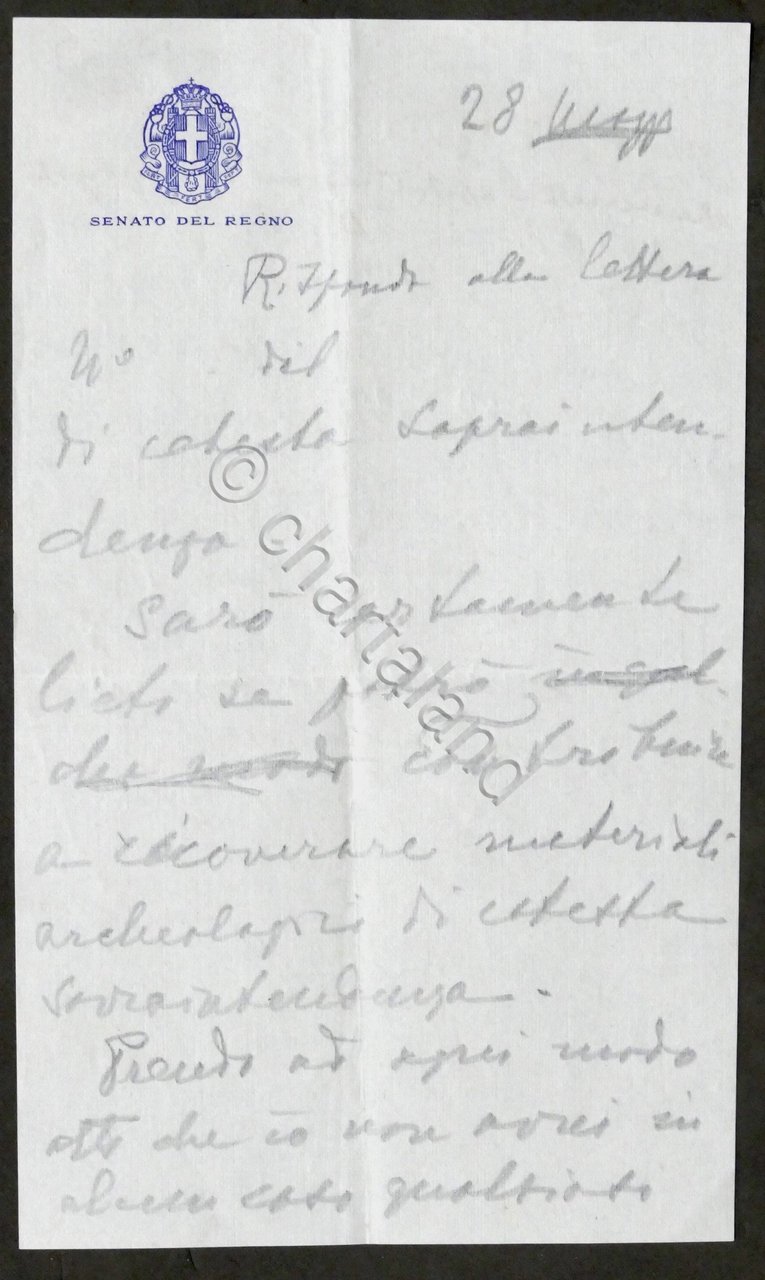 SENATO DEL REGNO
28 Magg
Rispondo alla lettera
No del
di cotesta Soprainten-
denza
Sarò certamente
lieto se potrò in qual-
che modo contribuire
a ricoverare materiali
archeologici di cotesta
Sovraintendenza.
Prendo ad ogni modo
atto che io non avrei in
alcun caso qualsiasi
© chartaland